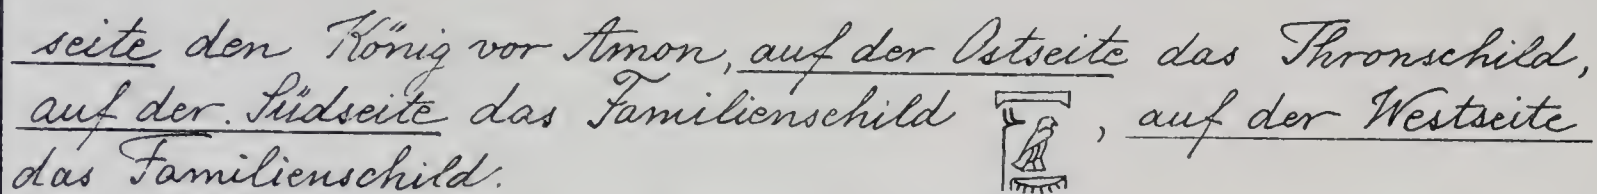 seite den König vor Amon, auf der Ostseite das Thronschild,
auf der Südseite das Familienschild , auf der Westseite
das Familienschild.